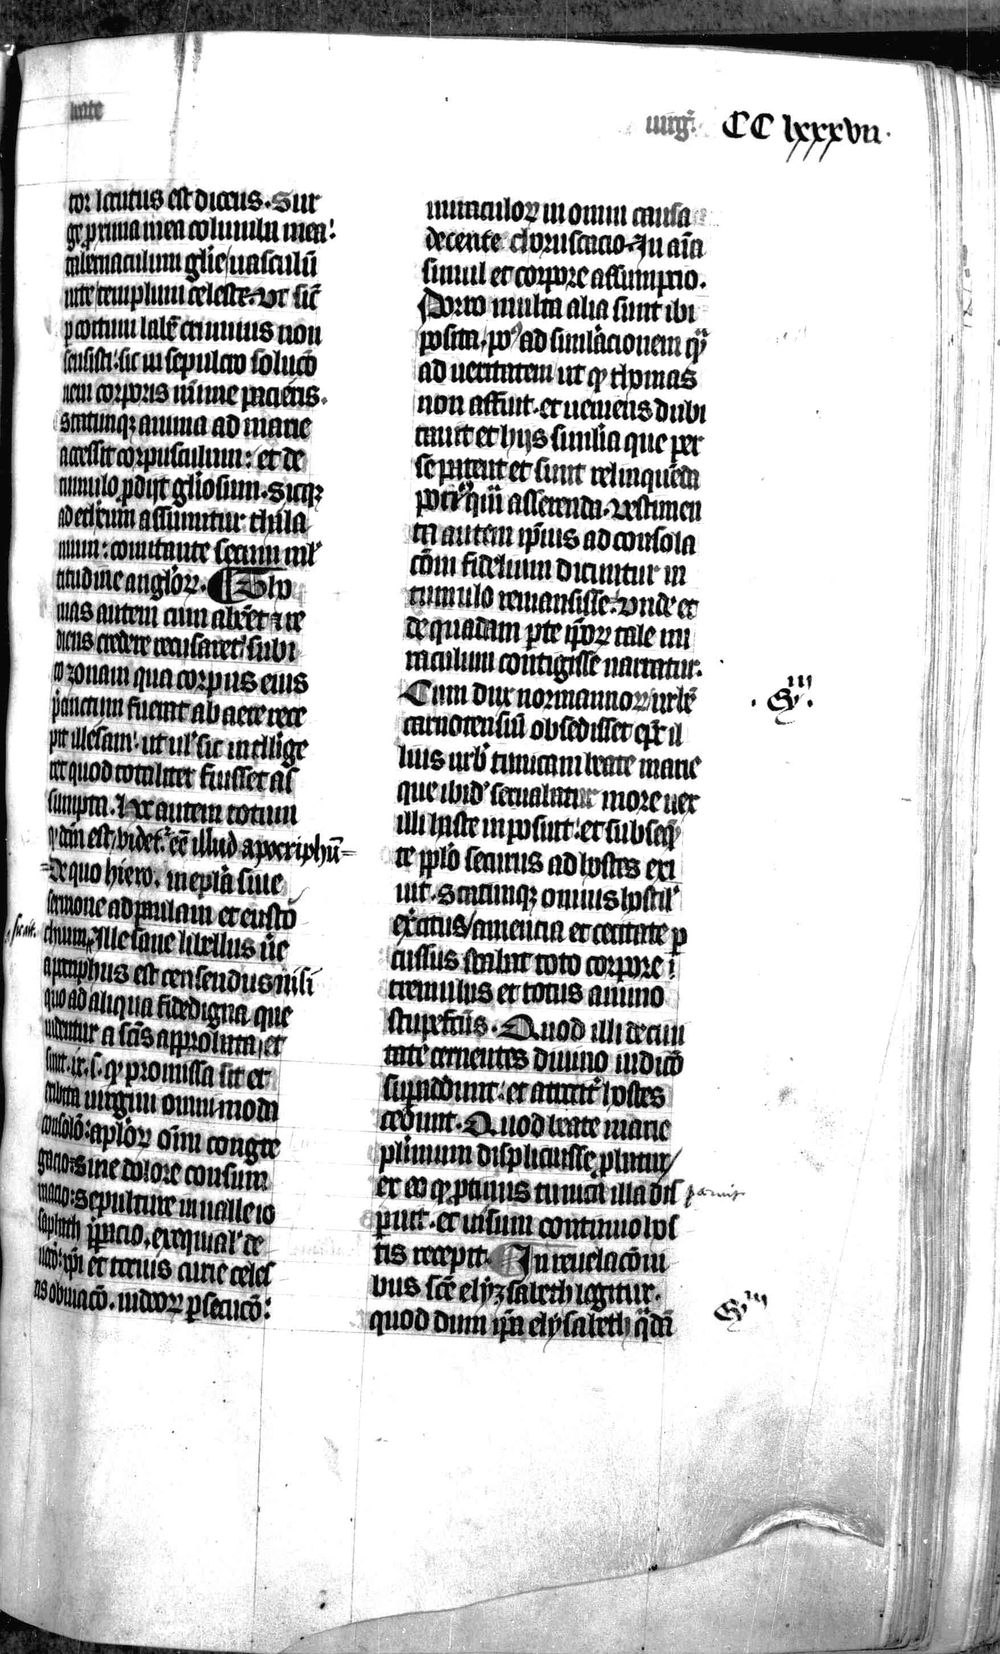 beate
uirgis CC lxxxvii.
tor locutus est dicens. Sur
ge proxima mea columba mea:
tab̄ernaculum glīe/uasculū
uite templum celeste. Vt sic̄
p coitum labē criminis non
sensisti: sic in sepulcro solucō
nem corporis mīme pacieris.
Statimqꝫ anima ad marie
accessit corpusculum: et de
tumulo ꝓdijt gl̄iosum. Sicqꝫ
ad ethēum assumitur thala
mum: comitante secum ml̄
titudine angl̄oꝝ. Tho
mas autem cum abeēt ⁊ re
diens credere recusaret: subi
to zonam qua corpus eius
p̄cinctum fuerat ab aere rece
pit illesam: ut ul̄ sic intellige
ret quod totaliter fuisset as
sumpta. Hoc autem totum
qd̄ dcm̄ est, videt̄ eē illud apocriphū
De quo hiero. in epl̄a siue
sermone ad paulam et eusto
sic ait.
chium. Ille sane libellus ūe
apocriphus est censendus nisi
quo ad aliqua fidedigna que
uidentur a sc̄is approbata, et
sunt .ix. s. ꝙ promissa sit et
exhibita uirgini omnimoda
consolō: apl̄oꝝ oīm congre
gacio: sine dolore consum
macio: sepulture in ualle io
saphath p̄pacio. exequiaꝝ de
uocō: xp̄i et tocius curie celes
tis obuiacō. iudeoꝝ ꝑsecucō:
miraculoꝝ in omni causa
decente choruscacio. In aīa
simul et corpore assumpcio.
Porro multa alia sunt ibi
posita. poꝰ ad simil̄acionem qͣꝫ
ad ueritatem ut ꝙ thomas
non affuit. et ueniens dubi
tauit et hijs similia que per
se patent et sunt relinquēda
pociꝰ qͣꝫ asserenda. Vestimen
ta autem ip̄ius ad consola
cōm fidelium dicuntur in
tumulo remansisse. Vnde et
de quadam ꝑte ip̄oꝝ tale mi
raculum contigisse narratur.
Cum dux normannoꝝ urbē
Gͥͥͥ.
carnotensiū obsedisset ep̄c il
lius urbꝭ tunicam beate marie
que ibidꝰ seruabatur more uex
illi haste inposuit: et subseq̄
te pplō securus ad hostes exi
uit. Statimqꝫ omnis hostil̓
ex̄citus/amencia et cecitate ꝑ
cussus stabat toto corpore i
tremulus et totus animo
stupefactus. Quod illi de ciui
tate cernentes diuino iudicō
suꝑaddunt: et atrocit̓ hostes
cedunt. Quod beate marie
pl̄imum displicuisse ꝓbatur/
ex eo ꝙ ꝓtinus tunica illa dis paruit
paruit. et uisum continuo hos
tis recepit. In reuelacōni
bus sc̄e elyzabeth legitur.
quod dum ip̄a elyzabeth qͣdā
Gͥͥͥ